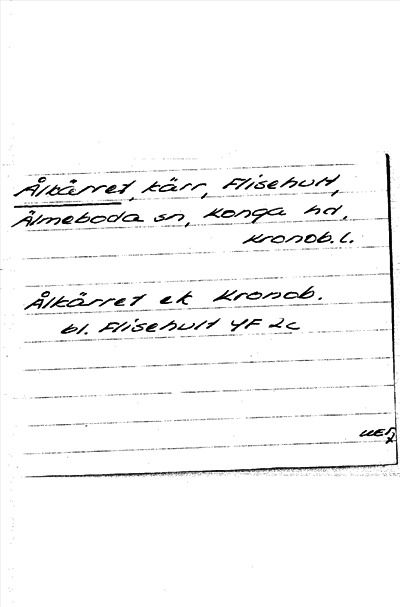 Ålkärret, kärr, Flisehult,
Älmeboda sn, Konga hd,
Kronob.l.
Ålkärret ek Kronob.
bl. Flisehult 4F 2c